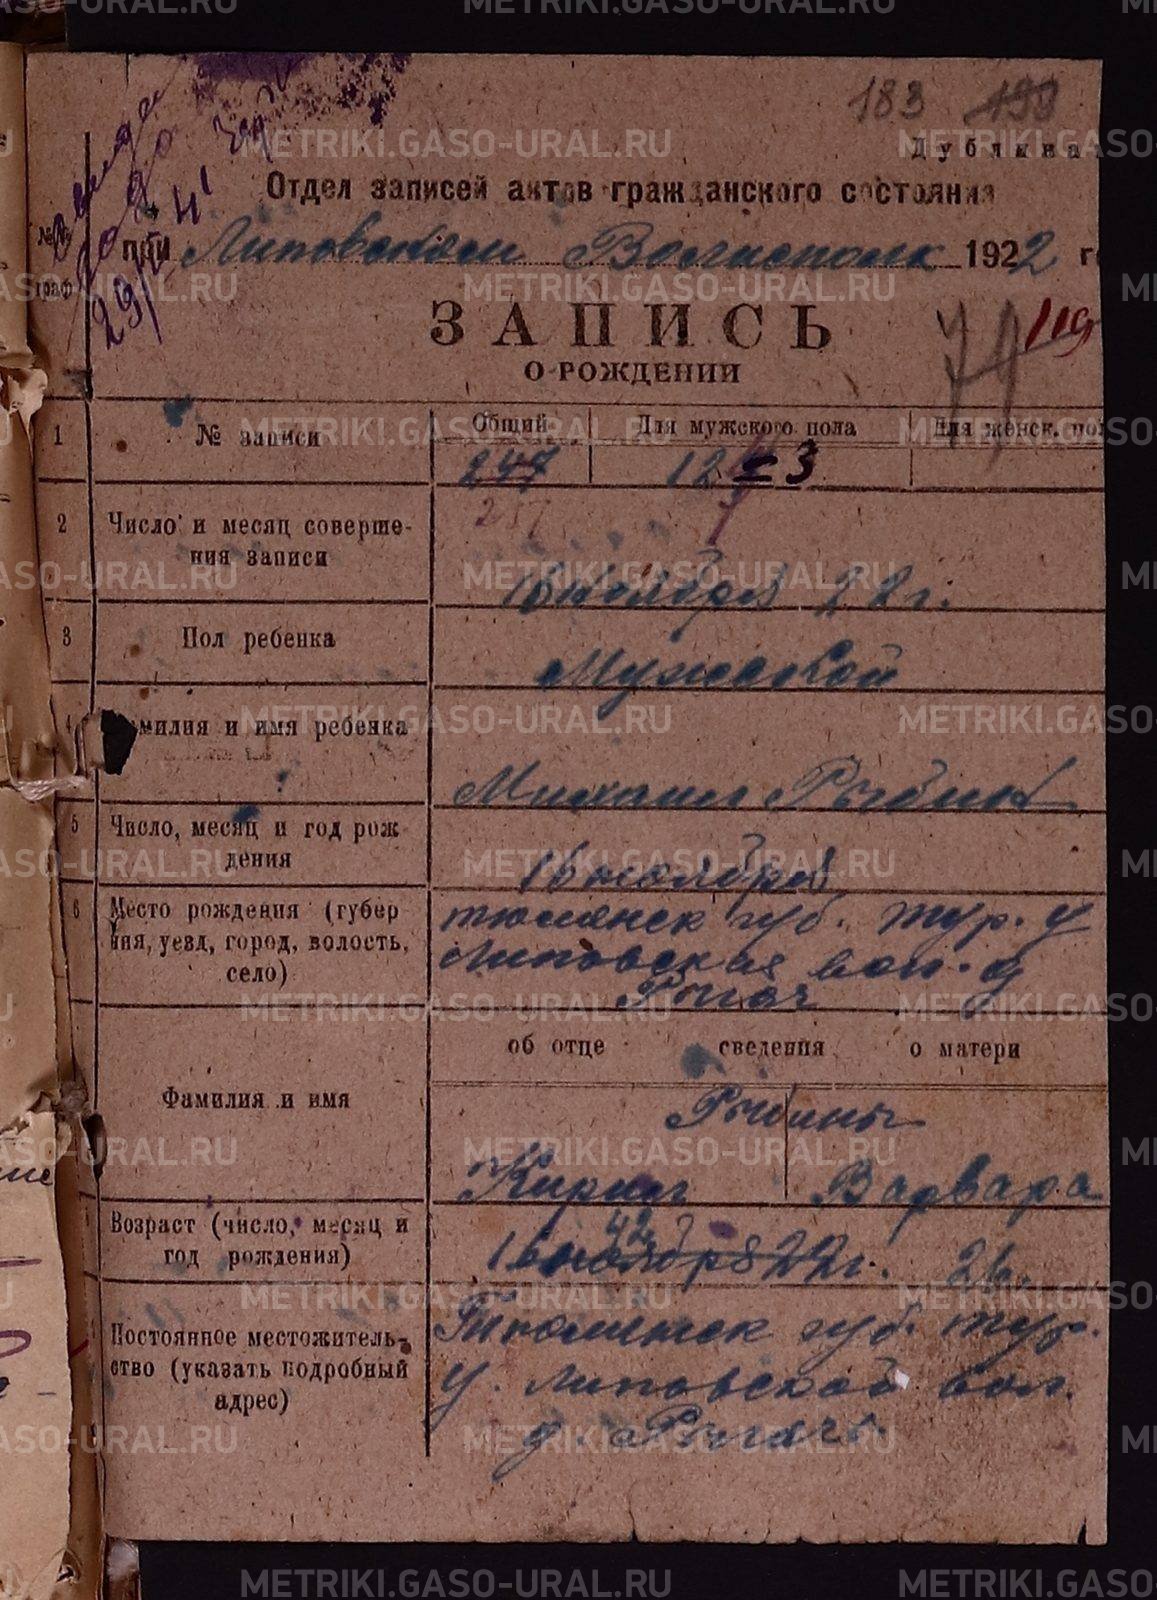 183 198
Дубликат
Отдел записей актов гражданского состояния
при Липовском Волисполк 1922 г
№№
граф
29/V 41
ЗАПИСЬ
О РОЖДЕНИИ
74 119
1 № записи Общий Для мужского пола Для женск. пол
247 123
2 Число и месяц соверше-
ния записи
16 ноября 22 г.
3 Пол ребенка
Мужской
4 Фамилия и имя ребенка
Михаил Рыбин
5 Число, месяц и год рож
дения
16 ноября
6 Место рождения (губер
ния, уезд, город, волость,
село)
тюменск губ. тур. у
Липовская вол. д
об отце сведения о матери
Фамилия и имя
Рыбины
Кирил Варвара
Возраст (число, месяц и
год рождения)
42
16 ноября 22 г. 26.
Постоянное местожитель-
ство (указать подробный
адрес)
Тюменск губ. тур.
у. Липовской вол.
д.
METRIKI.GASO-URAL.RU